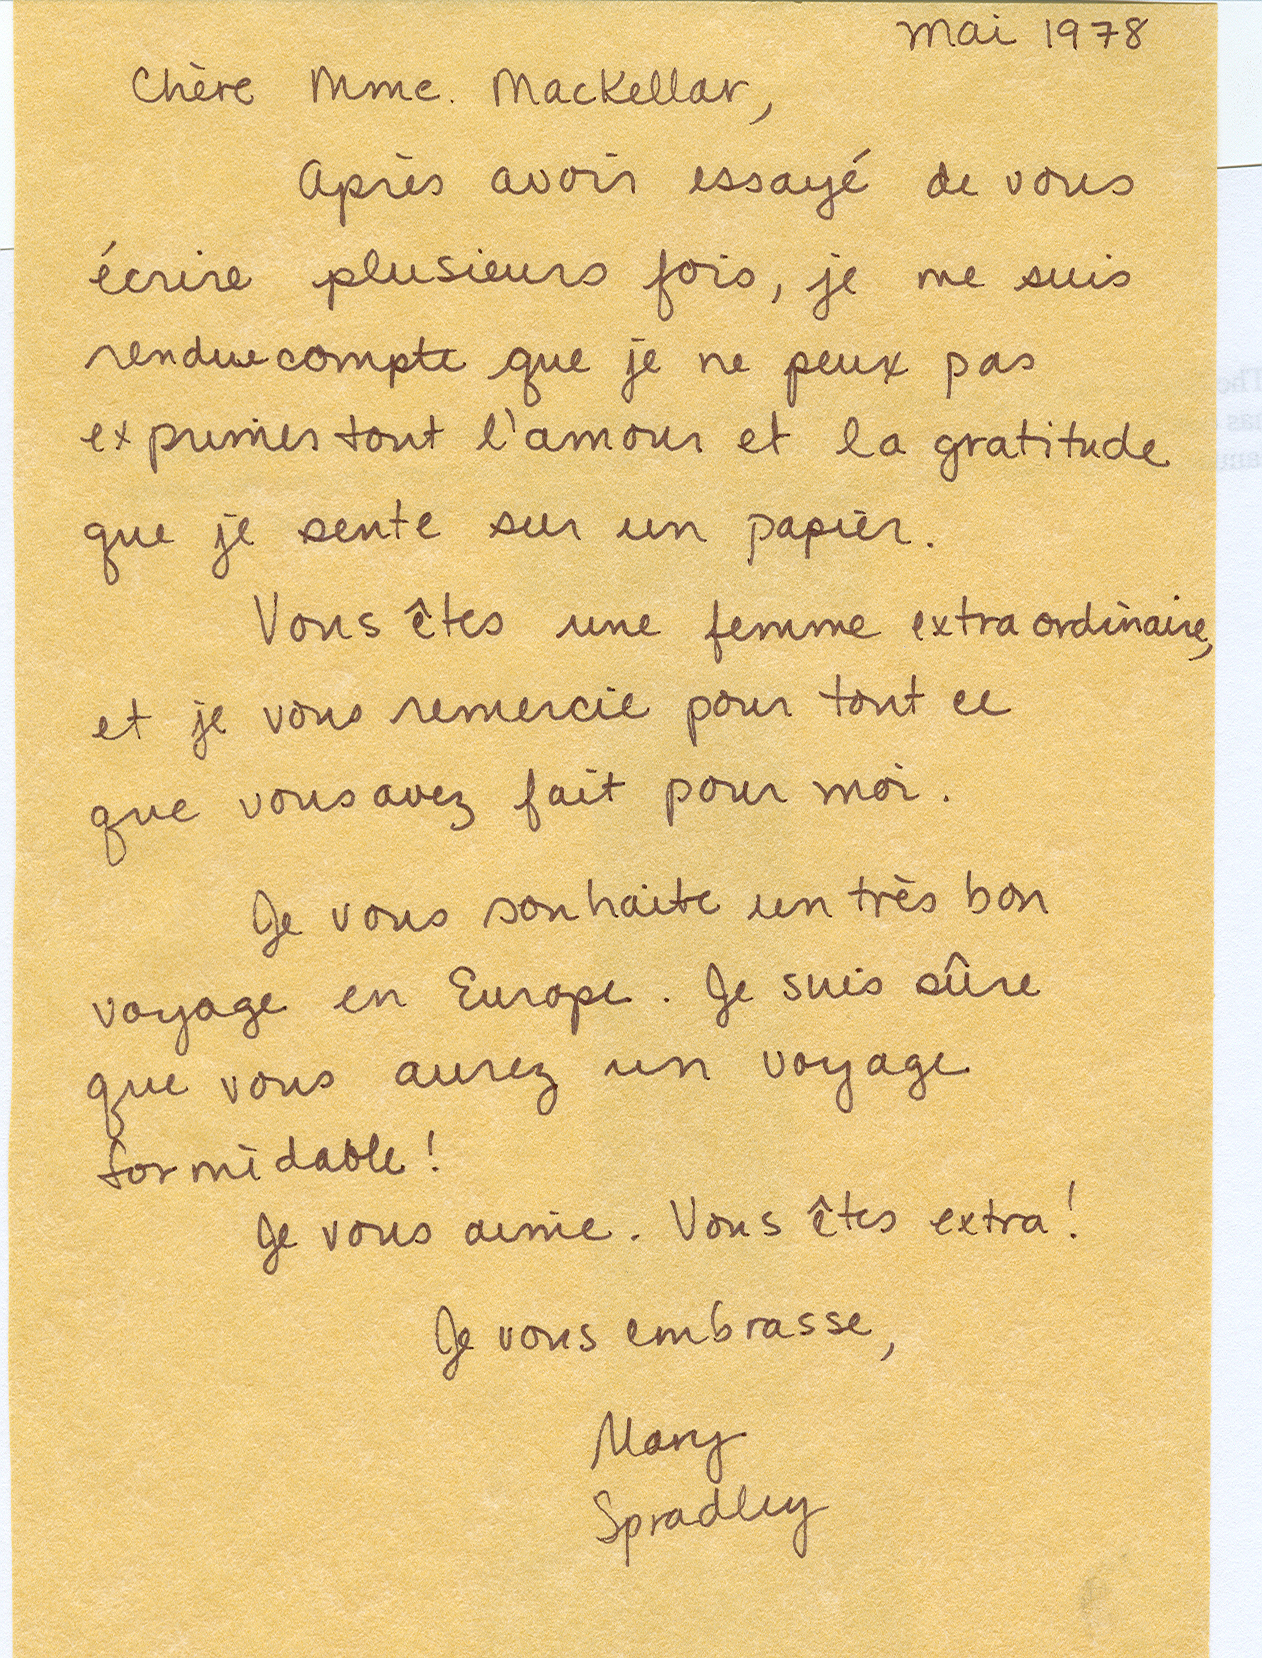 mai 1978
Chère Mme. MacKellar,
Après avoir essayé de vous
écrire plusieurs fois, je me suis
rendue compte que je ne peux pas
exprimer tout l'amour et la gratitude
que je sente sur un papier.
Vous êtes une femme extraordinaire,
et je vous remercie pour tout ce
que vous avez fait pour moi.
Je vous souhaite un très bon
voyage en Europe. Je suis sûre
que vous aurez un voyage
formidable!
Je vous aime. Vous êtes extra!
Je vous embrasse,
Mary
Spradley